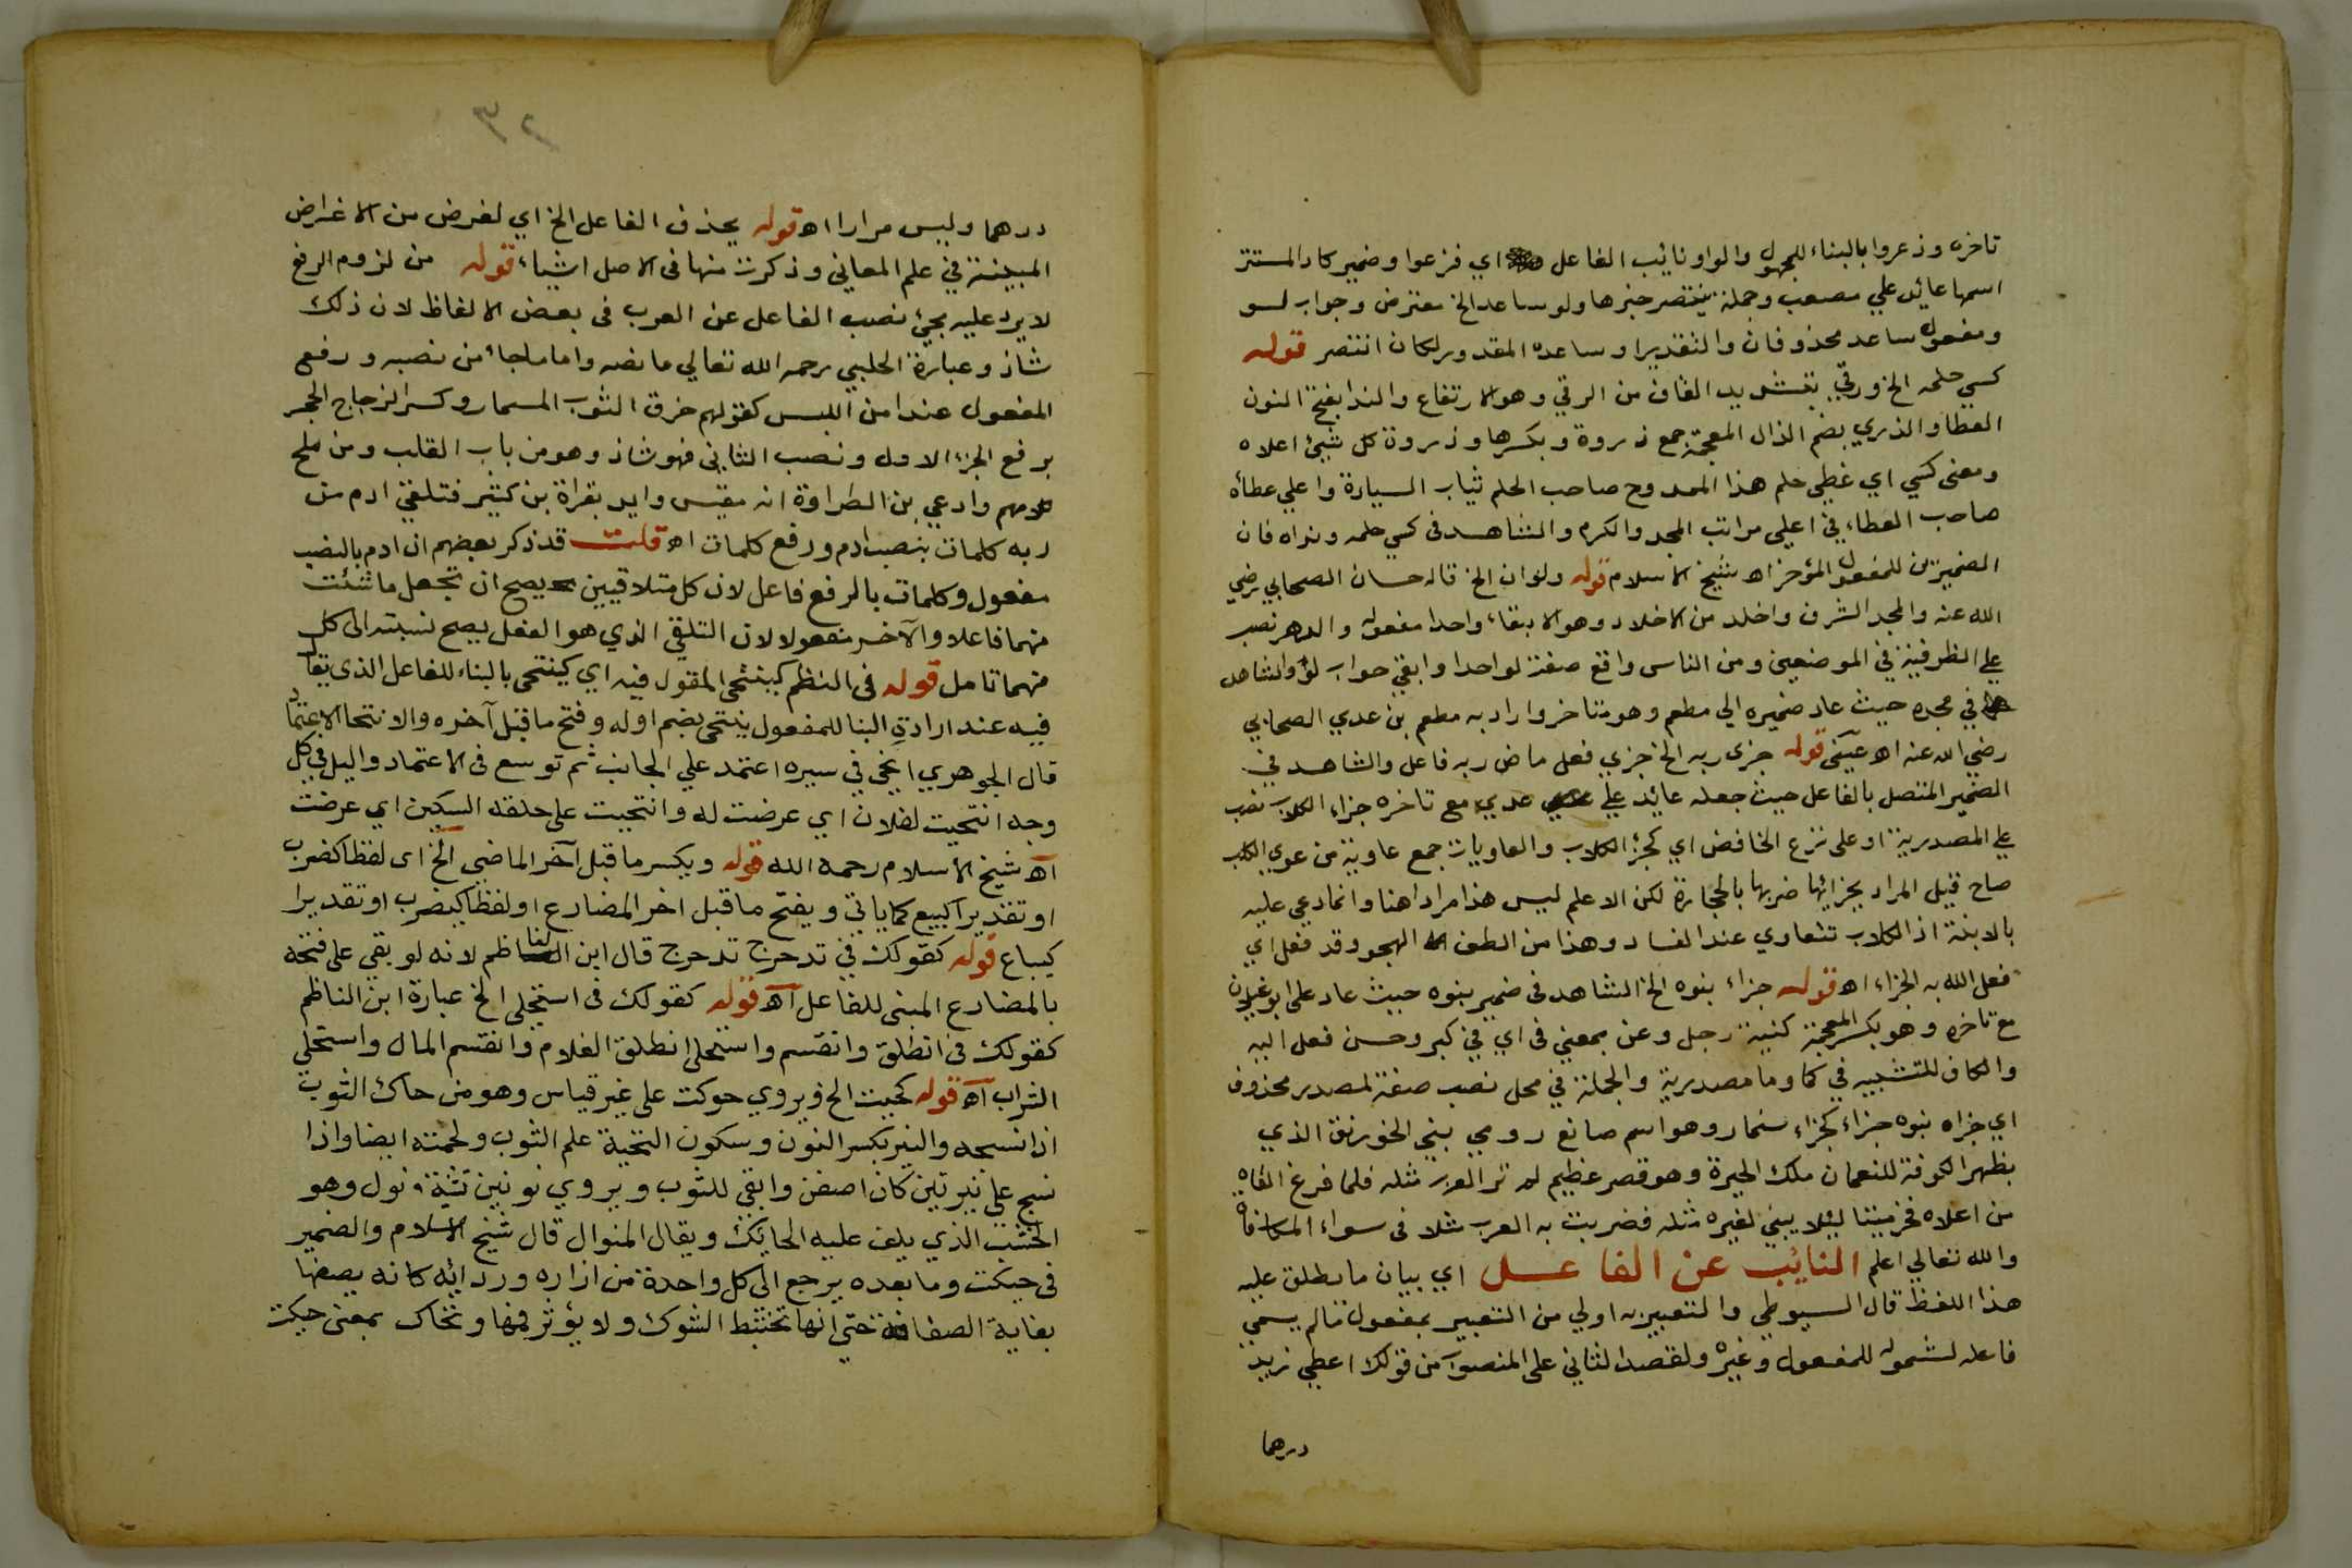 تاخره وذعروا بالبناء للمجهول والواو نائب الفاعل اي فزعوا وضمير كاد المستتر
اسمها عائد علي مصعب وجملة ينتصر خبرها ولو ساعد الخ معترض وجواب لو
ومفعول ساعد محذوفان والتقدير او ساعده المقدور لكان انتصر قوله
كسي حلمه الخ ورقي بتشديد القاف من الرقي وهو الارتفاع والندا بفتح النون
العطا والذري بضم الذال المعجمة جمع ذروة وبكسرها وذروة كل شيئ اعلاه
ومعنى كسي اي غطي حلم هذا الممدوح صاحب الحلم ثياب السيادة واعلي عطاه
صاحب العطاء في اعلي مراتب المجد والكرم والشاهد في كسي حلمه ونداه فان
الضميرين للمفعول المؤخر اه شيخ الاسلام قوله ولو ان الخ قاله حسان الصحابي رضي
الله عنه والمجد الشرف واخلد من الاخلاد وهو الابقاء واحدا مفعوله والدهر نصب
علي الظرفية في الموضعين ومن الناس واقع صفة لواحدا وابقي جواب لو والشاهد
في مجده حيث عاد ضميره الي مطعم وهو متاخر واراد به مطعم بن عدي الصحابي
رضي الله عنه اه عيني قوله جزى ربه الخ جزي فعل ماض ربه فاعل والشاهد في
الضمير المتصل بالفاعل حيث جعله عائد علي عدي مع تاخره جزاء الكلاب نصب
علي المصدرية او على نزع الخافض اي كجزاء الكلاب والعاويات جمع عاوية من عوي الكلب
صاح قيل المراد بجزائها ضربها بالحجارة لكن الاعلم ليس هذا مرادا هنا وانما دعي عليه
بالابنة اذ الكلاب تتعاوي عند الفساد وهذا من الطف الهجو وقد فعل اي
فعل الله به الجزاء اه قوله جزاء بنوه الخ الشاهد في ضمير بنوه حيث عاد على ابو غيلان
مع تاخره وهو بكسر المعجمة كنية رجل وعن بمعني في اي في كبر وحسن فعل اليه
والكاف للتشبيه في كما وما مصدرية والجملة في محل نصب صفة لمصدر محذوف
اي جزاه بنوه جزاء كجزاء سنمار وهو اسم صانع رومي بني الخورنق الذي
بظهر الكوفة للنعمان ملك الحيرة وهو قصر عظيم لم تر العرب مثله فلما فرغ القاه
من اعلاه فخر ميتا ليلا يبني لغيره مثله فضربت به العرب مثلا في سواء المكافاة
والله تعالي اعلم النائب عن الفاعل اي بيان ما يطلق عليه
هذا اللفظ قال السيوطي والتعبير به اولي من التعبير بمفعول ما لم يسمي
فاعله لشموله للمفعول وغيره ولقصد الثاني على المنصوب من قولك اعطي زيد
درهما
٣٢
درهما وليس مرارا اه قوله يحذف الفاعل الخ اي لغرض من الاغراض
المبينة في علم المعاني وذكرت منها في الاصل اشياء قوله من لزوم الرفع
لا يرد عليه بجيئ نصب الفاعل عن العرب في بعض الالفاظ لان ذلك
شاذ وعبارة الحلبي رحمه الله تعالي ما نصه واما ما جاء من نصبه ورفع
المفعول عند امن اللبس كقولهم خرق الثوب المسمار وكسر الزجاج الحجر
برفع الجزء الاول ونصب الثاني فهو شاذ وهو من باب القلب ومن ملح
كلامهم وادعي بن الطراوة انه مقيس وايد بقراة بن كثير فتلقي ادم من
ربه كلمات بنصب ادم ورفع كلمات اه قلت قد ذكر بعضهم ان ادم بالنصب
مفعول وكلمات بالرفع فاعل لان كل متلاقيين يصح ان تجعل ما شئت
منهما فاعلا والآخر مفعولا لان التلقي الذي هو الفعل يصح نسبته الى كل
منهما تامل قوله في النظم كينتحي المقول فيه اي كينتحي بالبناء للفاعل الذي يقال
فيه عند ارادة البنا للمفعول ينتحي بضم اوله وفتح ما قبل آخره والانتحا الاعتماد
قال الجوهري انحي في سيره اعتمد علي الجانب ثم توسع في الاعتماد والميل في كل
وجه انتحيت لفلان اي عرضت له وانتحيت على حلقه السكين اي عرضت
اه شيخ الاسلام رحمه الله قوله ويكسر ما قبل آخر الماضي الخ اى لفظا كضرب
او تقديرا كبيع كما ياتي ويفتح ما قبل اخر المضارع او لفظا كيضرب او تقديرا
كيباع قوله كقولك في تدحرج تدحرج قال ابن الناظم لانه لو بقي على فتحه
بالمضارع المبنى للفاعل اه قوله كقولك في استحلي الخ عبارة ابن الناظم
كقولك في انطلق وانقسم واستحلى انطلق الغلام وانقسم المال واستحلي
الشراب اه قوله كحيت الخ ويروي حوكت على غير قياس وهو من حاك الثوب
اذا نسجه والنير بكسر النون وسكون التحية علم الثوب ولحمته ايضا واذا
نسج علي نيرتين كان اصفن وابقي للثوب ويروي نونين تثنية نول وهو
الخشب الذي يلف عليه الحائك ويقال المنوال قال شيخ الاسلام والضمير
في حيكت وما بعده يرجع الى كل واحدة من ازاره وردائه كانه يصفها
بغاية الصفافة حتي انها تختبط الشوك ولا يؤثر فيها وتحاك بمعنى حيكت